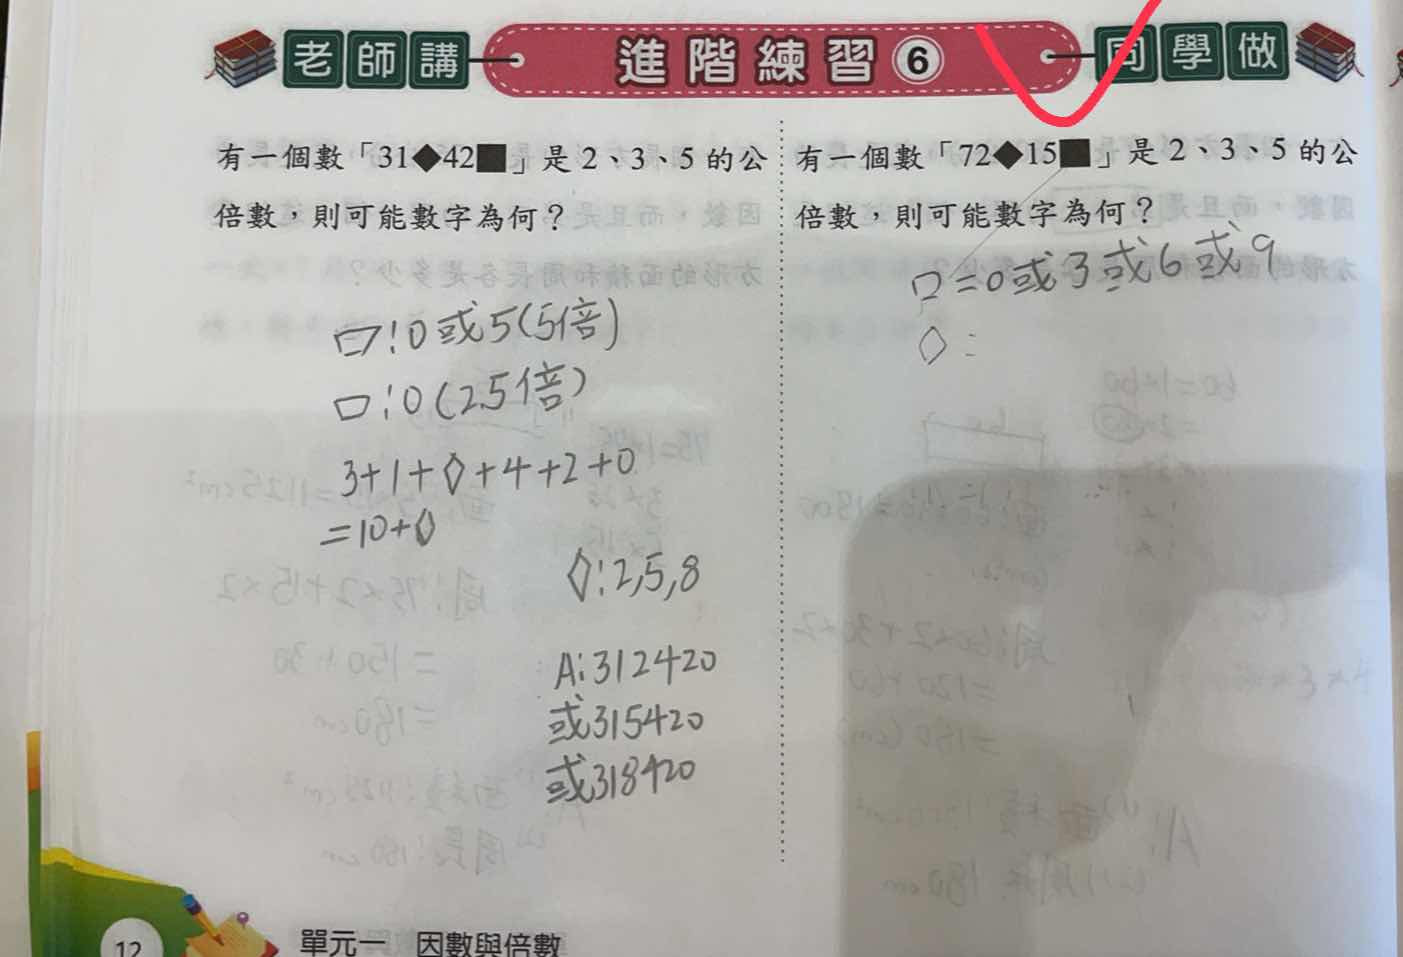 老師講 進階練習⑥ 同學做
有一個數「31◆42■」是 2、3、5 的公
倍數，則可能數字為何？
□:0或5(5倍)
□:0(2.5倍)
3+1+◊+4+2+0
=10+◊
◊:2,5,8
A:312420
或315420
或318420
有一個數「72◆15■」是 2、3、5 的公
倍數，則可能數字為何？
□=0或3或6或9
◊:
12 單元一 因數與倍數